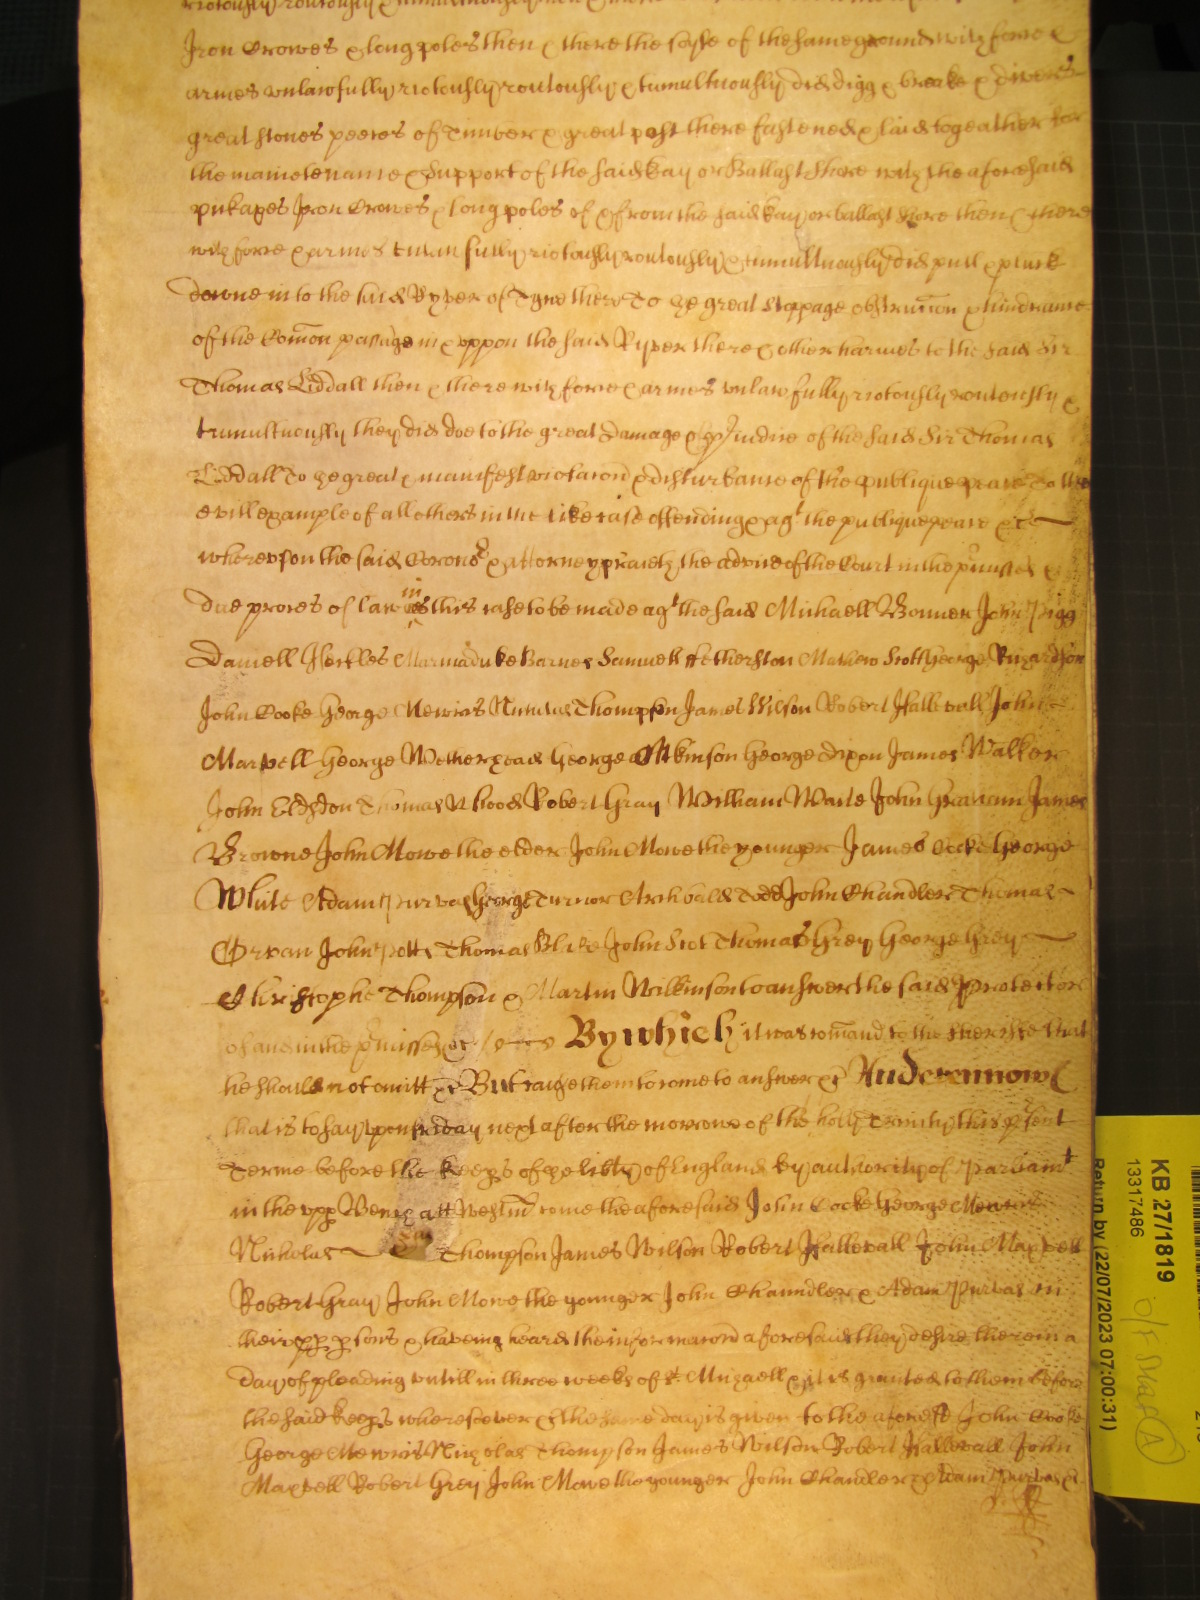 riotously routously & tumultuously
Iron Crowes & long poles then & there the soyle of the same ground with force &
armes unlawfully riotously routously & tumultuously did digg & breake & divers
great stones peeces of Timber & great post there fastened & laid togeather for
the maintename & Support of the said Kay or Ballast Shore with the aforesaid
pickaxes Iron Crowes & long poles of & from the said Kay or ballast shore then & there
with force & armes unlawfully riotously routously & tumultuously did pull & pluck
downe into the said Ryver of Tyne there To ye great stoppage obstruccon & hindrance
of the Comon passage in & uppon the said Ryver there & other harmes to the said Sir
Thomas Liddall then & there with force & armes unlawfully riotously routously &
tumultuously they did doe to the great damage & of the said Sir Thomas
Liddall To ye great & manifest & disturbance of the publique peace To the
evill example of all others in the like case offending & agt the publique peace &c
whereupon the said Corone & attorney prayeth the advice of the Court in the pmisses &
due proces of law in this case to be made agt the said Michaell Bonner John Pigg
Daniell Herkles Marmaduke Barnes Samuell ffetherston Mathew Scott George Richardson
John Cooke George Mewris Nicholas Thompson James Wilson Robert Hallewall John
Maxwell George Wetherhead George Atkinson George Dixon James Walker
John Eldsdon Thomas Robert Gray William Waile John James
Browne John Mowe the elder John Mowe the younger James Cocke George
White Adam Purvas George Turnor Archbald Todd John Chandler Thomas
John Potts Thomas Blike John Scot Thomas Grey George Grey
Christopher Thompson & Martin Wilkinson to answer the said Protector
of and in the pmisses &c By which it was comand to the Sheriffe that
he should not omitt &c But cause them to come to answer &c And now
that is to say upon friday next after the morrow of the holy Trinity this psent
Terme before the Keeps of ye libty of England by authority of Parliamt
in the upp Bench att Westm come the aforesaid John Cocke George Mewris
Nicholas Thompson James Wilson Robert Hallewall John Maxwell
Robert Gray John Mowe the younger John Chaundler & Adam Purvas in
their pp psons & haveing heard the informacon aforesaid they desire therein a
day of pleading untill in three weeks of St Michaell & it is granted to them before
the said keeps wheresoever &c the same day is given to the aforesd John Cooke
George Mewris Nicholas Thompson James Wilson Robert Hallewall John
Maxwell Robert Grey John Mowe the younger John Chandler & Adam Purvas &c
KB 27/1819
13317486
Return by (22/07/2023 07:00:31)